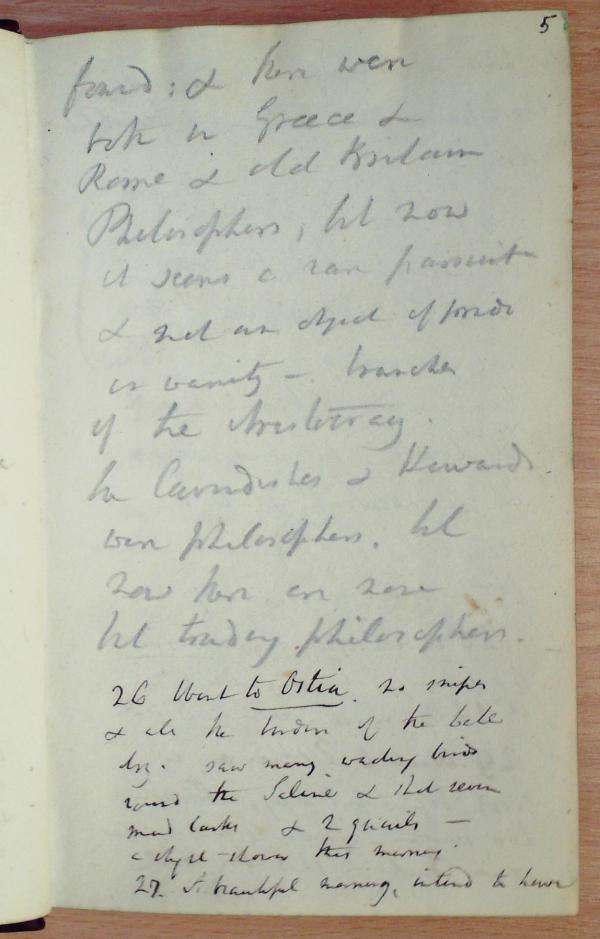 5
found: & there were
both in Greece &
Rome & old Britain
Philosophers, but now
it seems a rare pursuit
& not an object of pride
or vanity – branches
of the Aristocracy.
the Cavendishes & Howards
were philosophers. but
now there are none
but trading philosophers.
26 Went to Ostia. no snipes
& all the borders of the lake
dry. saw many wading birds
round the Saline & shot seven
mud larks & 2 quails –
a slight shower this morning.
27. A beautiful morning, intend to leave